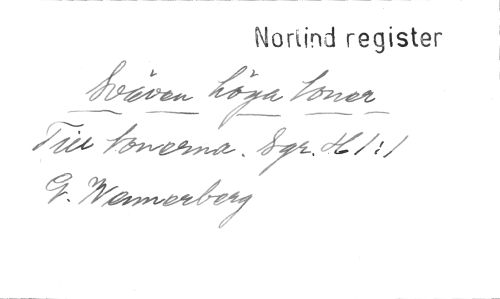 Norlind register
Sväven höga toner
Till tonerna. Sgr. H 1:1
G. Wennerberg